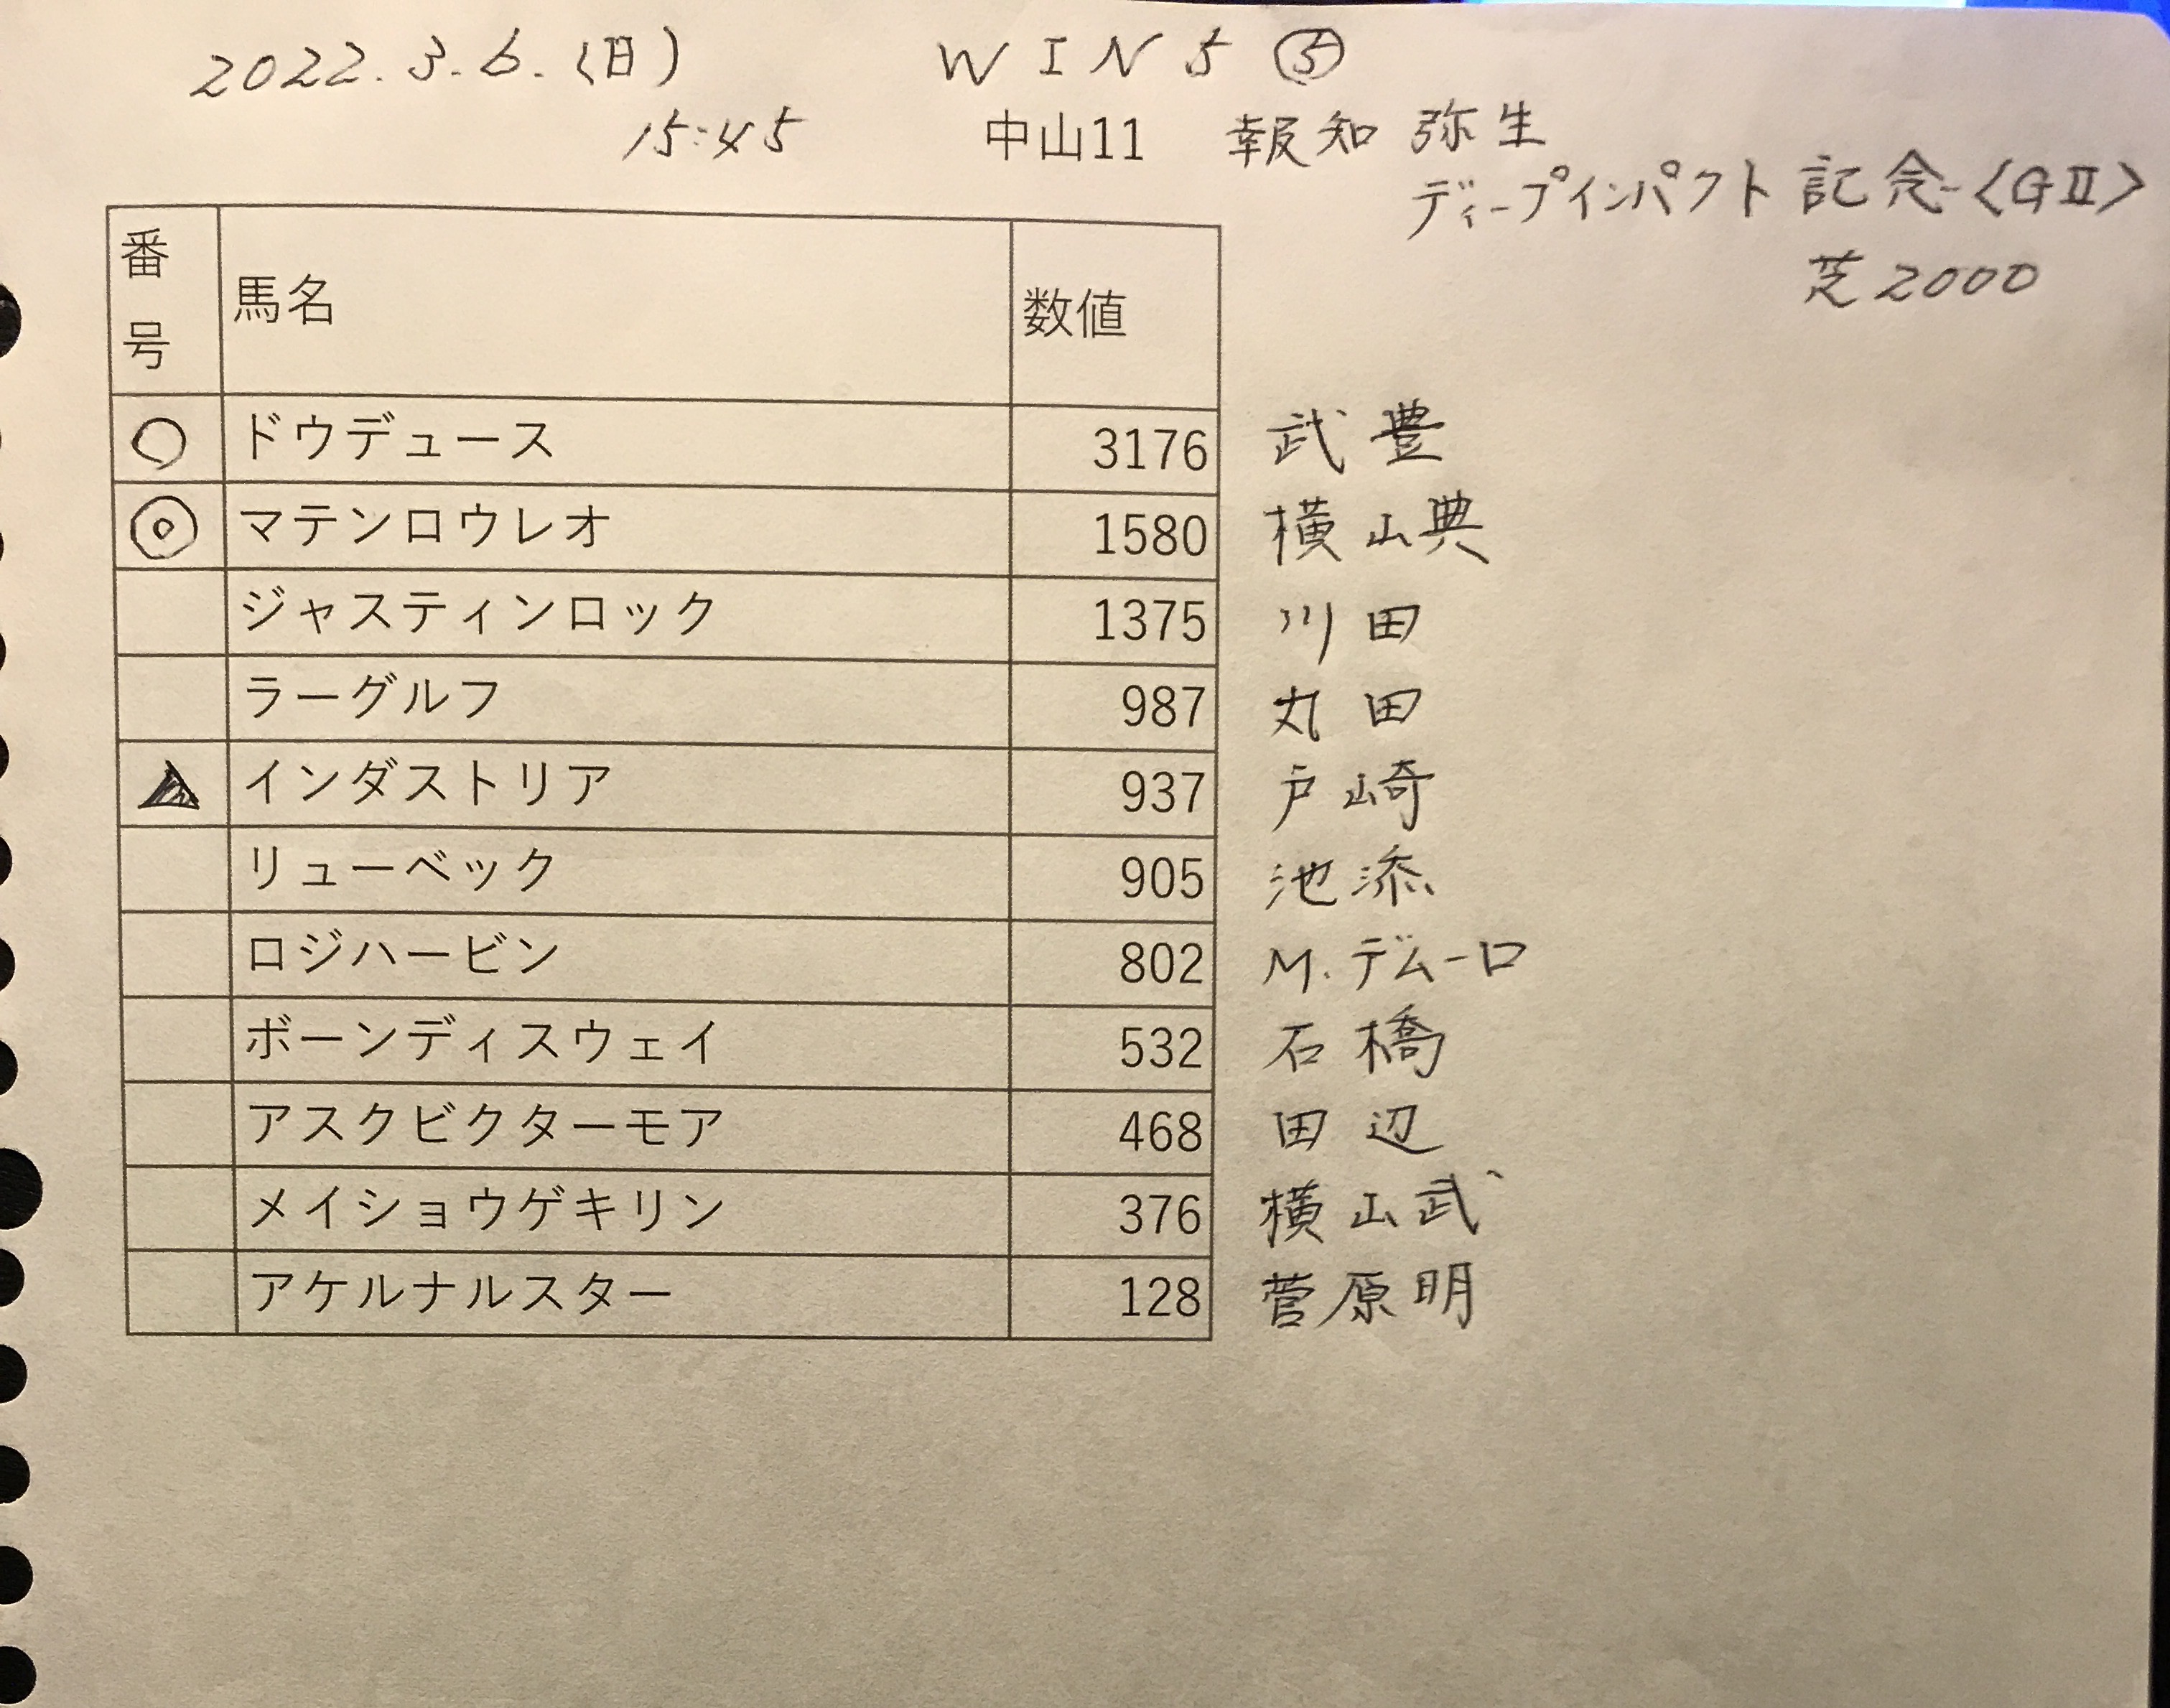 2022.3.6.(日) WIN5 ⑤
15:45 中山11 報知 弥生
ディープインパクト 記念〈GⅡ〉
芝2000
番号 馬名 数値
○ ドウデュース 3176 武豊
◎ マテンロウレオ 1580 横山典
ジャスティンロック 1375 川田
ラーグルフ 987 丸田
▲ インダストリア 937 戸崎
リューベック 905 池添
ロジハービン 802 M.デムーロ
ボーンディスウェイ 532 石橋
アスクビクターモア 468 田辺
メイショウゲキリン 376 横山武
アケルナルスター 128 菅原明